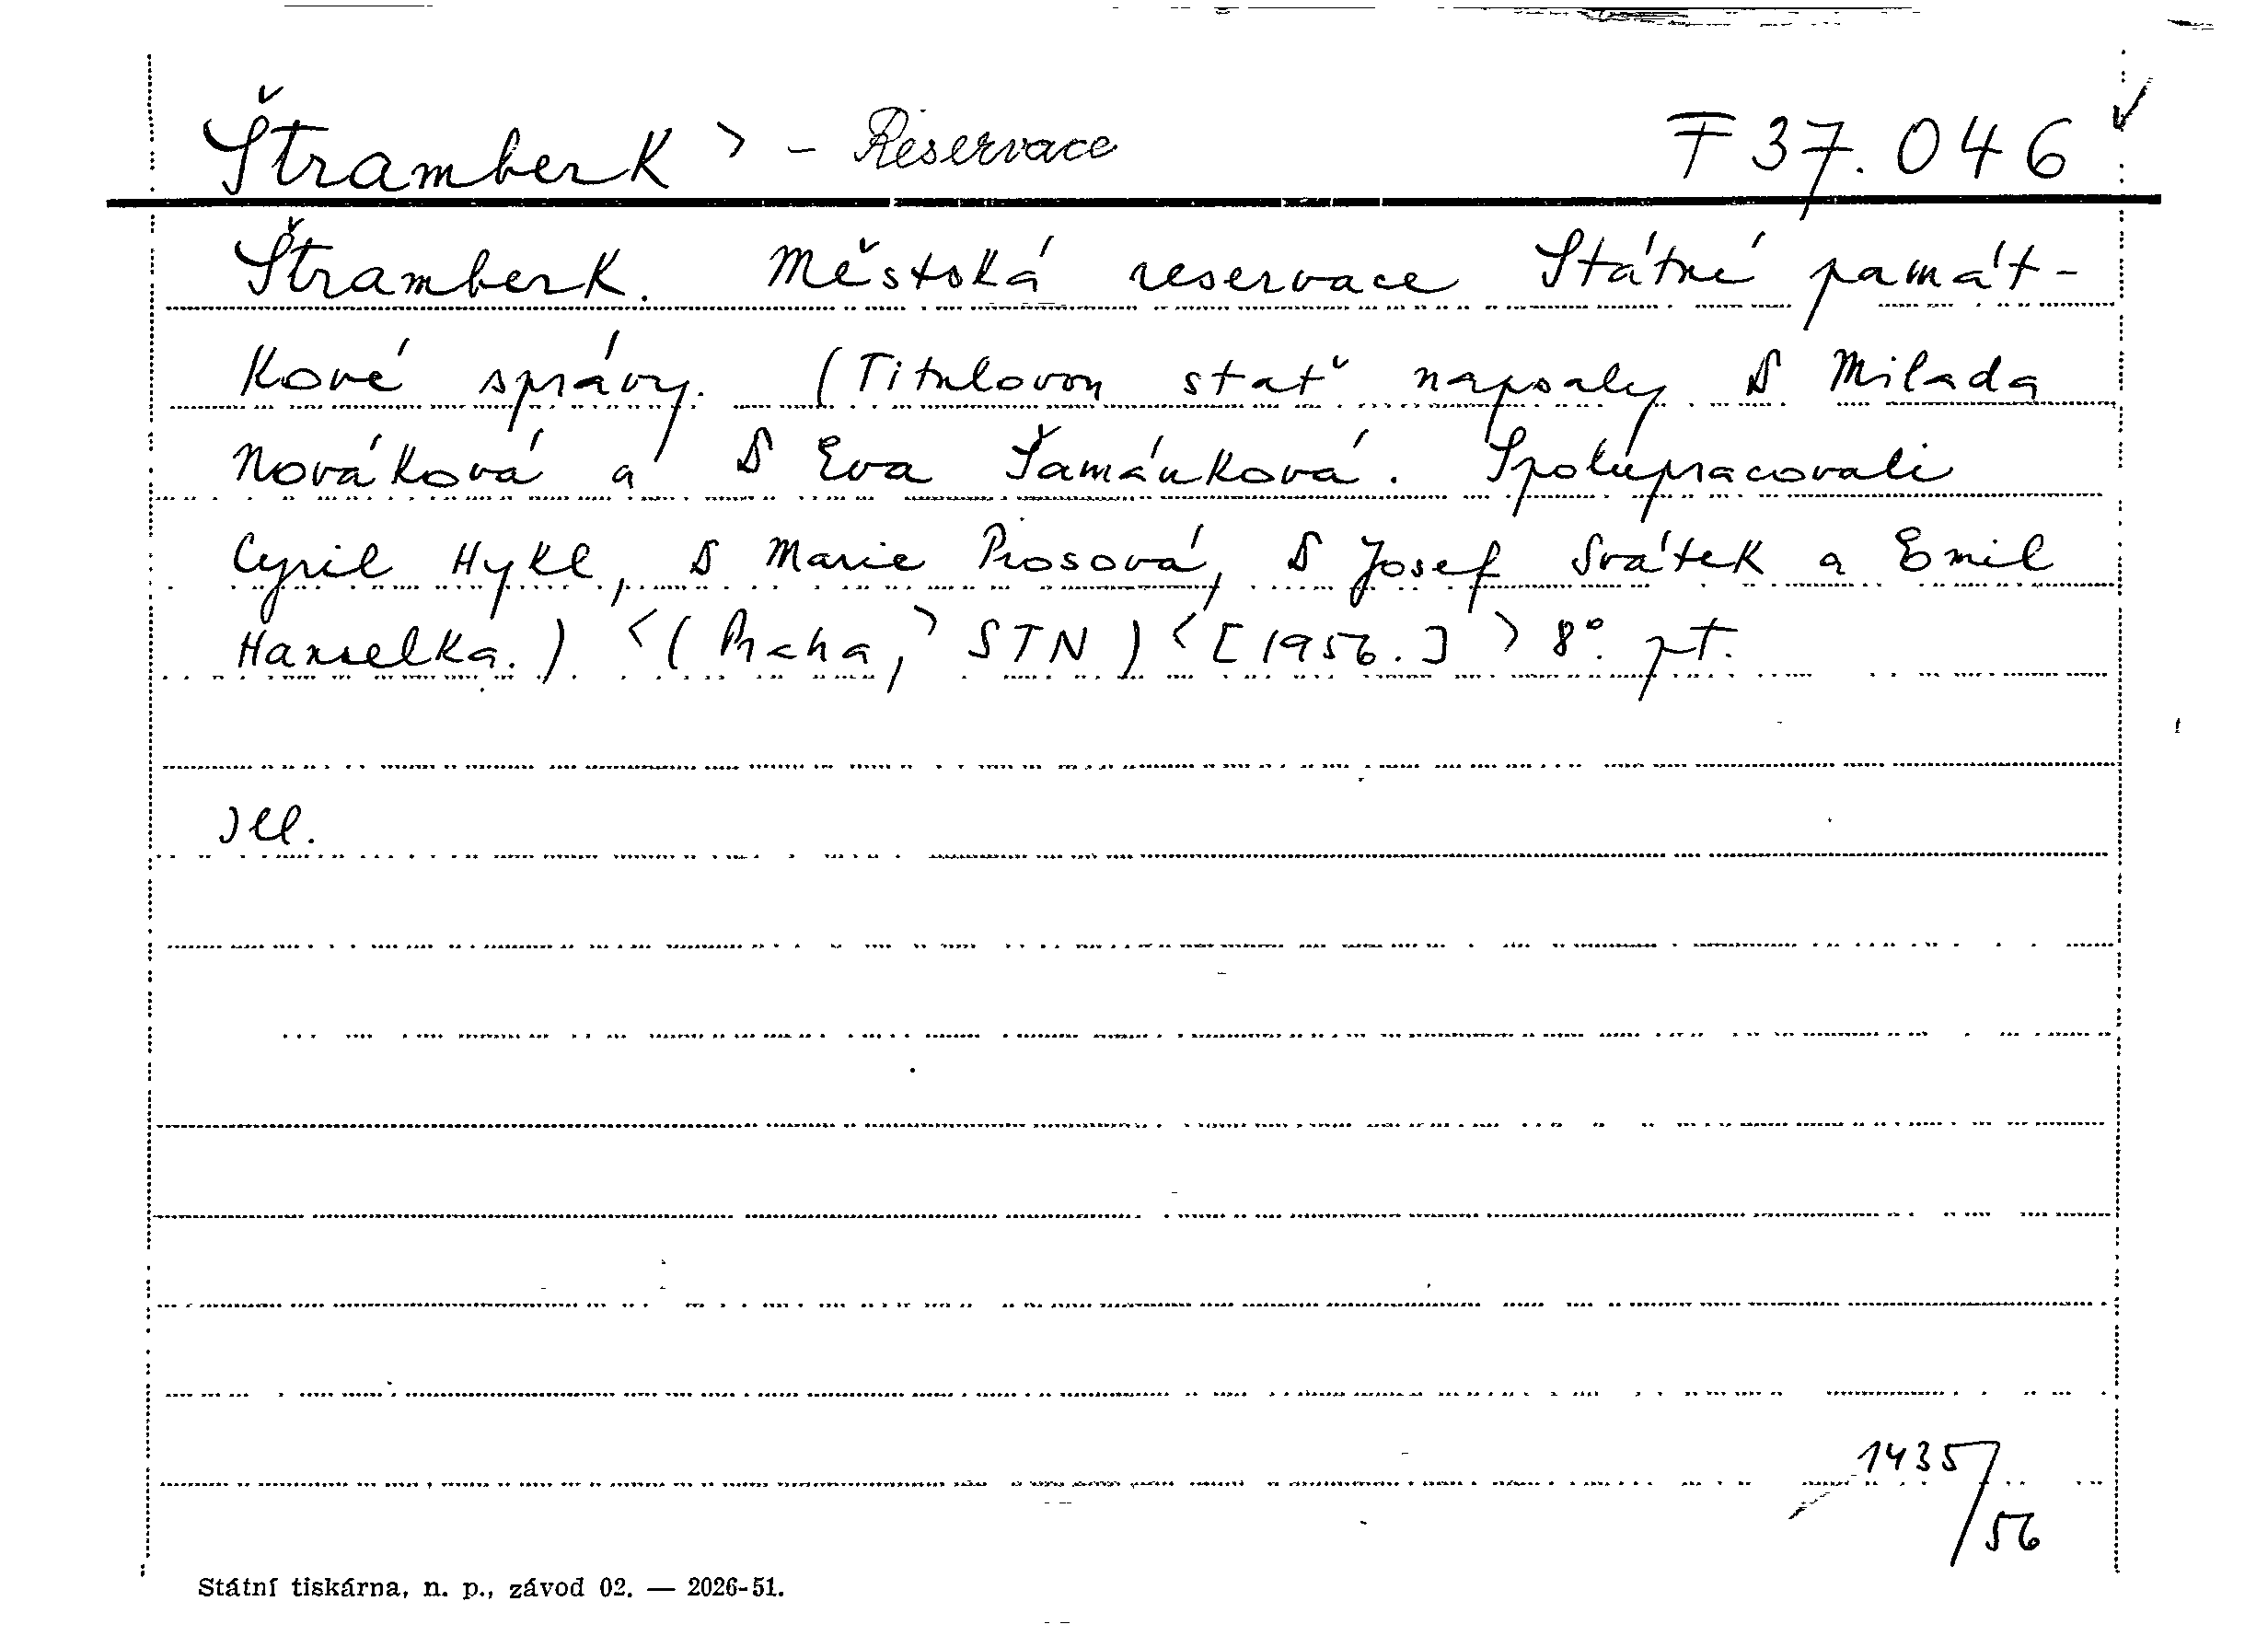 Štramberk > - Reservace F 37.046
Štramberk. Městská reservace Státné památ-
kové správy. (Titulovou stať napsaly D Milada
Nováková a D Eva Šamánková. Spolupracovali
Cyril Hykl, D Marie Prosová, D Josef Svátek a Emil
Hanselka.) <(Praha,> STN) <[1956.]> 8°. pt.
Ill.
1435/56
Státní tiskárna, n. p., závod 02. — 2026-51.